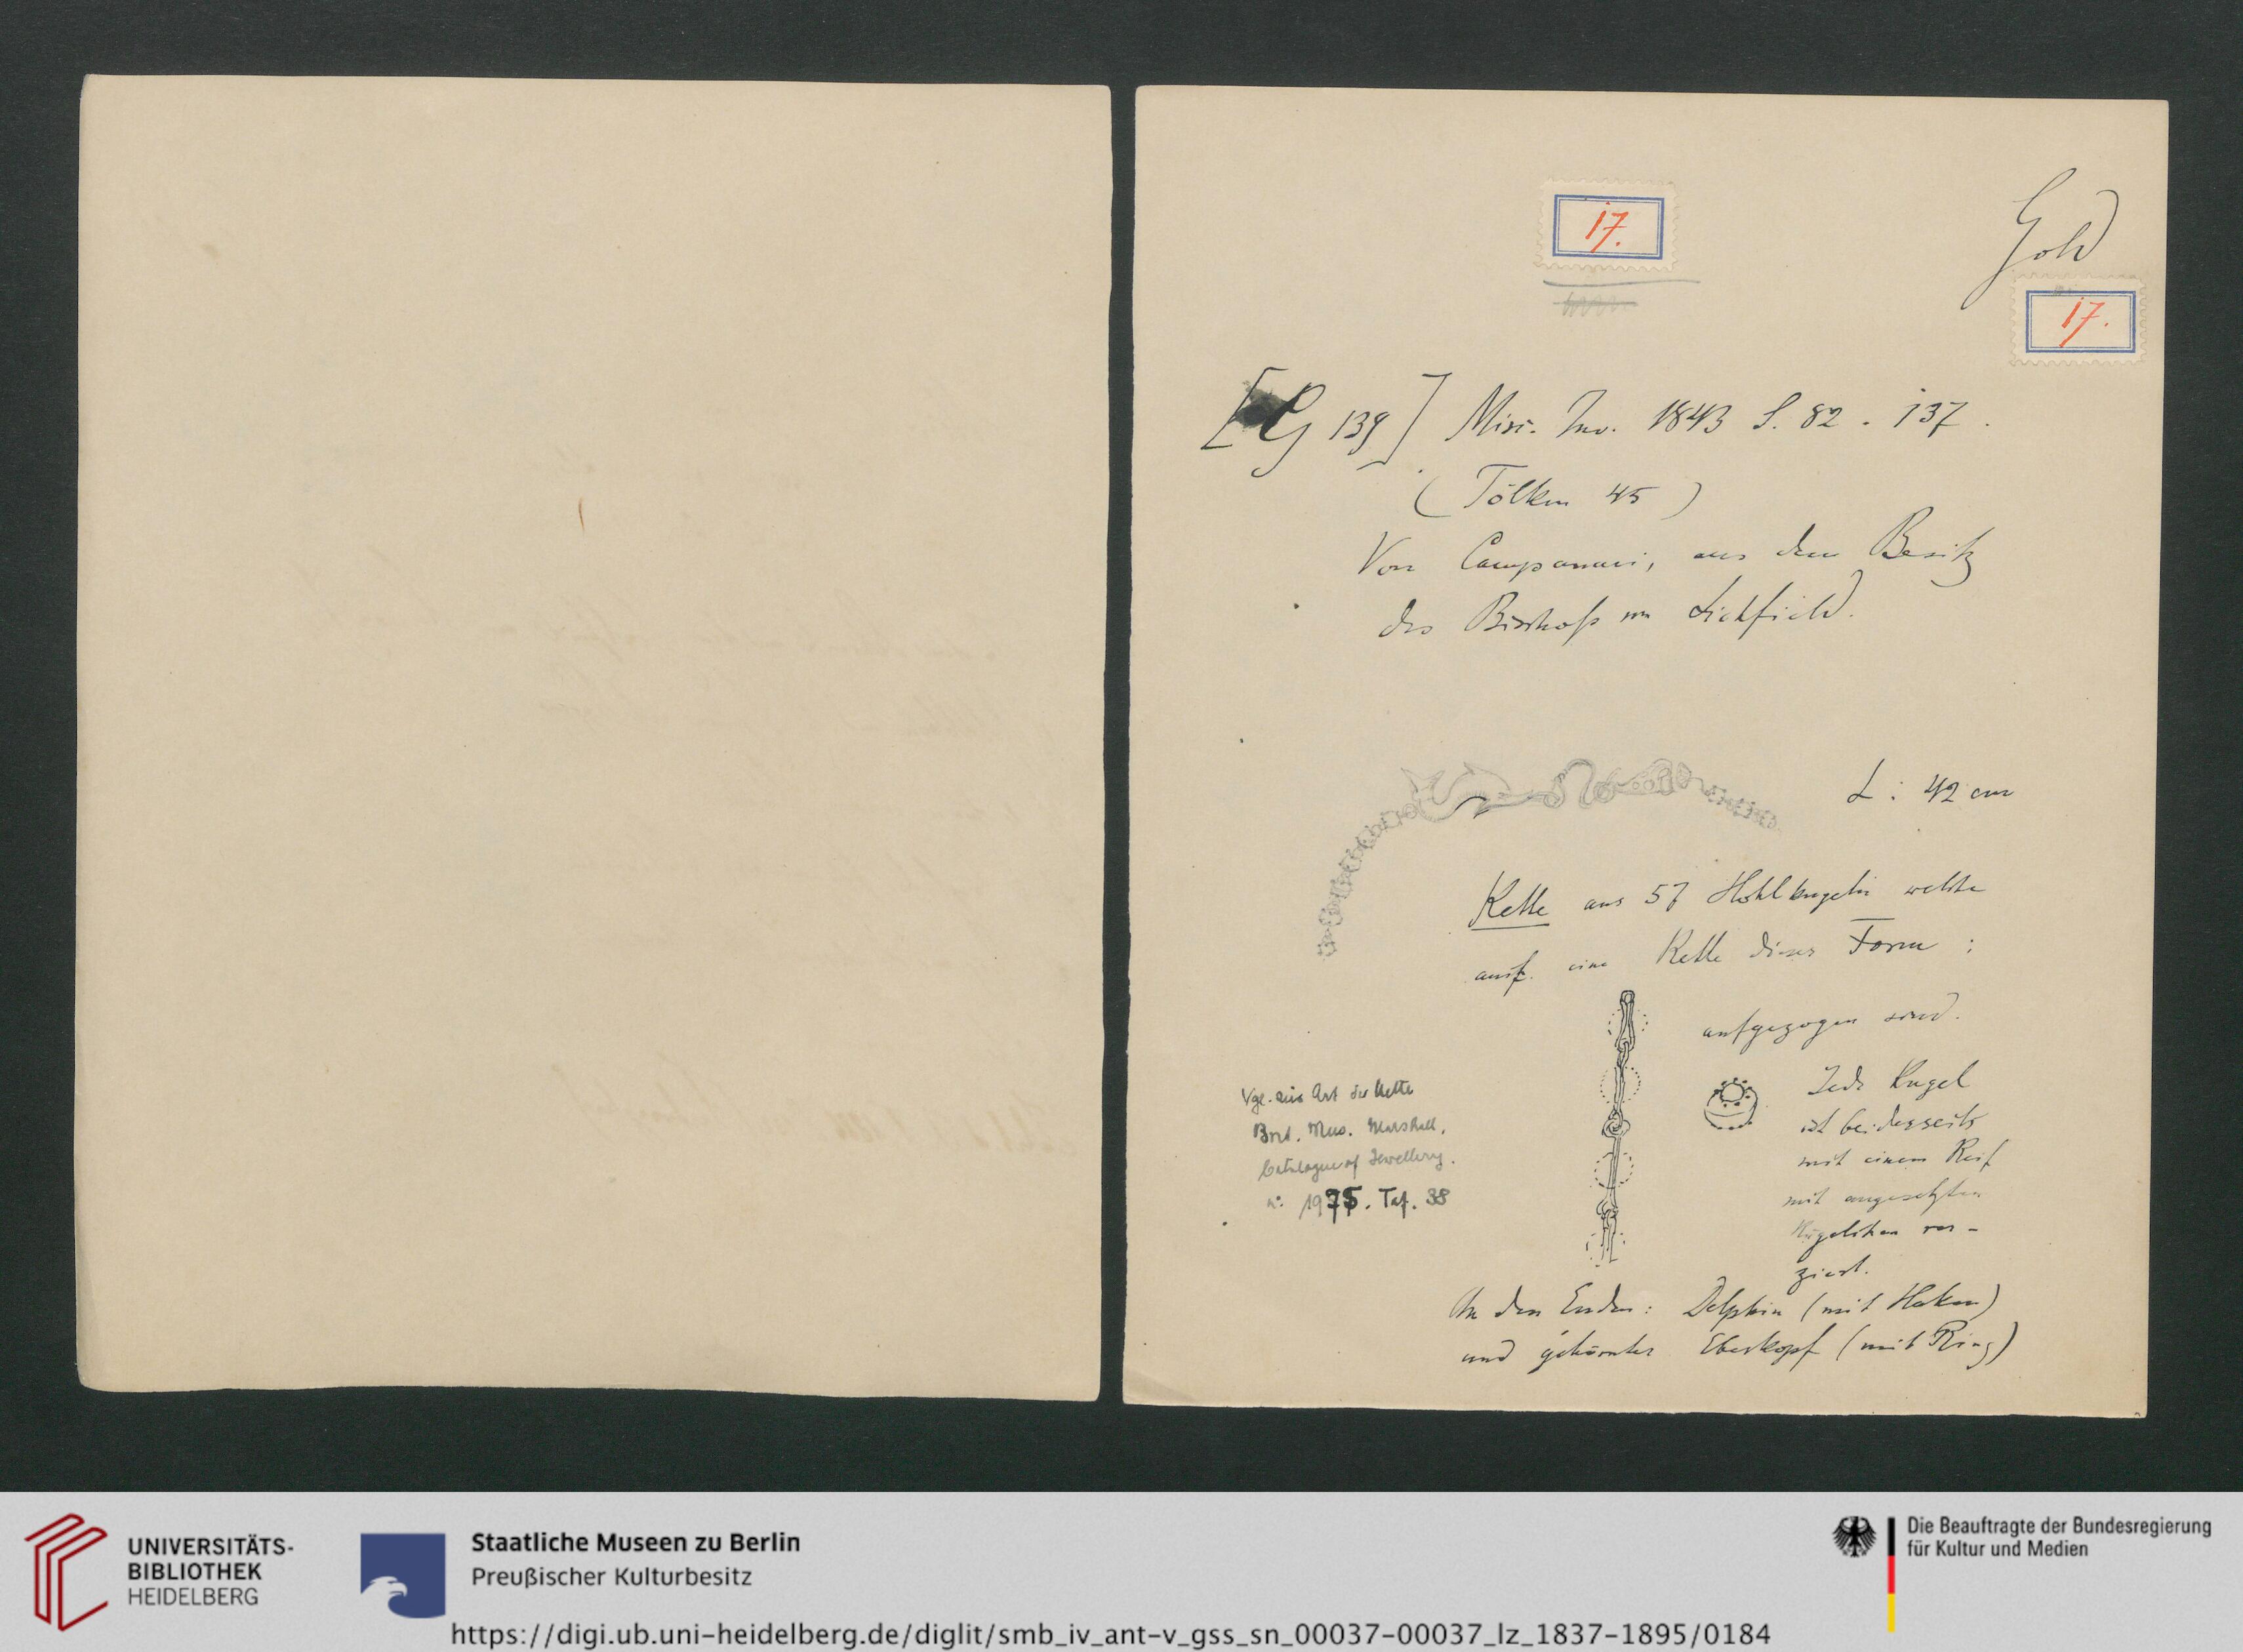 17.
Gold
17.
[G 139] Misc. Inv. 1843 S. 82 . 137 .
( Tölken 45 )
Von Campanari, aus dem Besitz
des Bischofs von Lichfield.
L : 42 cm
Kette aus 57 Hohlkugeln welche
auf eine Kette dieser Form :
aufgezogen sind.
Jede Kugel
ist beiderseits
mit einem Reif
mit angesetzten
Kügelchen ver-
ziert.
Vgl. Art der Kette
Brit. Mus. Marshall,
Catalogue of Jewellery.
n: 1975. Taf. 38
An den Enden: Delphin (mit Haken)
und gehörnter Eberkopf (mit Ring)
UNIVERSITÄTS-
BIBLIOTHEK
HEIDELBERG
Staatliche Museen zu Berlin
Preußischer Kulturbesitz
Die Beauftragte der Bundesregierung
für Kultur und Medien
https://digi.ub.uni-heidelberg.de/diglit/smb_iv_ant-v_gss_sn_00037-00037_lz_1837-1895/0184